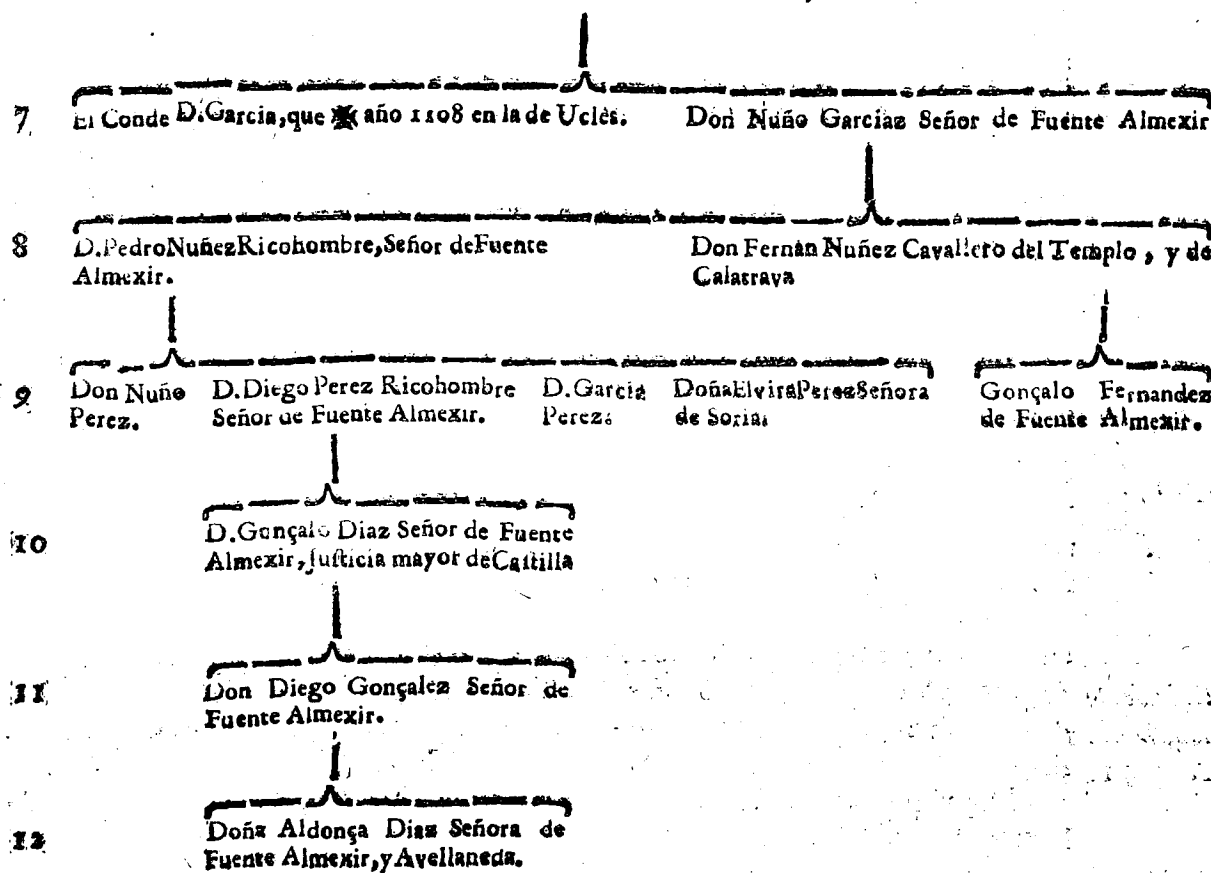 7 El Conde D.Garcia,que ✠ año 1108 en la de Uclès. Don Nuño Garciaz Señor de Fuente Almexir
8 D.Pedro Nuñez Ricohombre, Señor de Fuente
Almexir.
Don Fernàn Nuñez Cavallero del Templo, y de
Calatrava
9 Don Nuño
Perez.
D.Diego Perez Ricohombre
Señor de Fuente Almexir.
D.Garcia
Perez.
Doña Elvira Perez Señora
de Soria.
Gonçalo Fernandez
de Fuente Almexir.
10 D.Gonçalo Diaz Señor de Fuente
Almexir, Justicia mayor de Castilla
11 Don Diego Gonçalez Señor de
Fuente Almexir.
12 Doña Aldonça Diaz Señora de
Fuente Almexir, y Avellaneda.